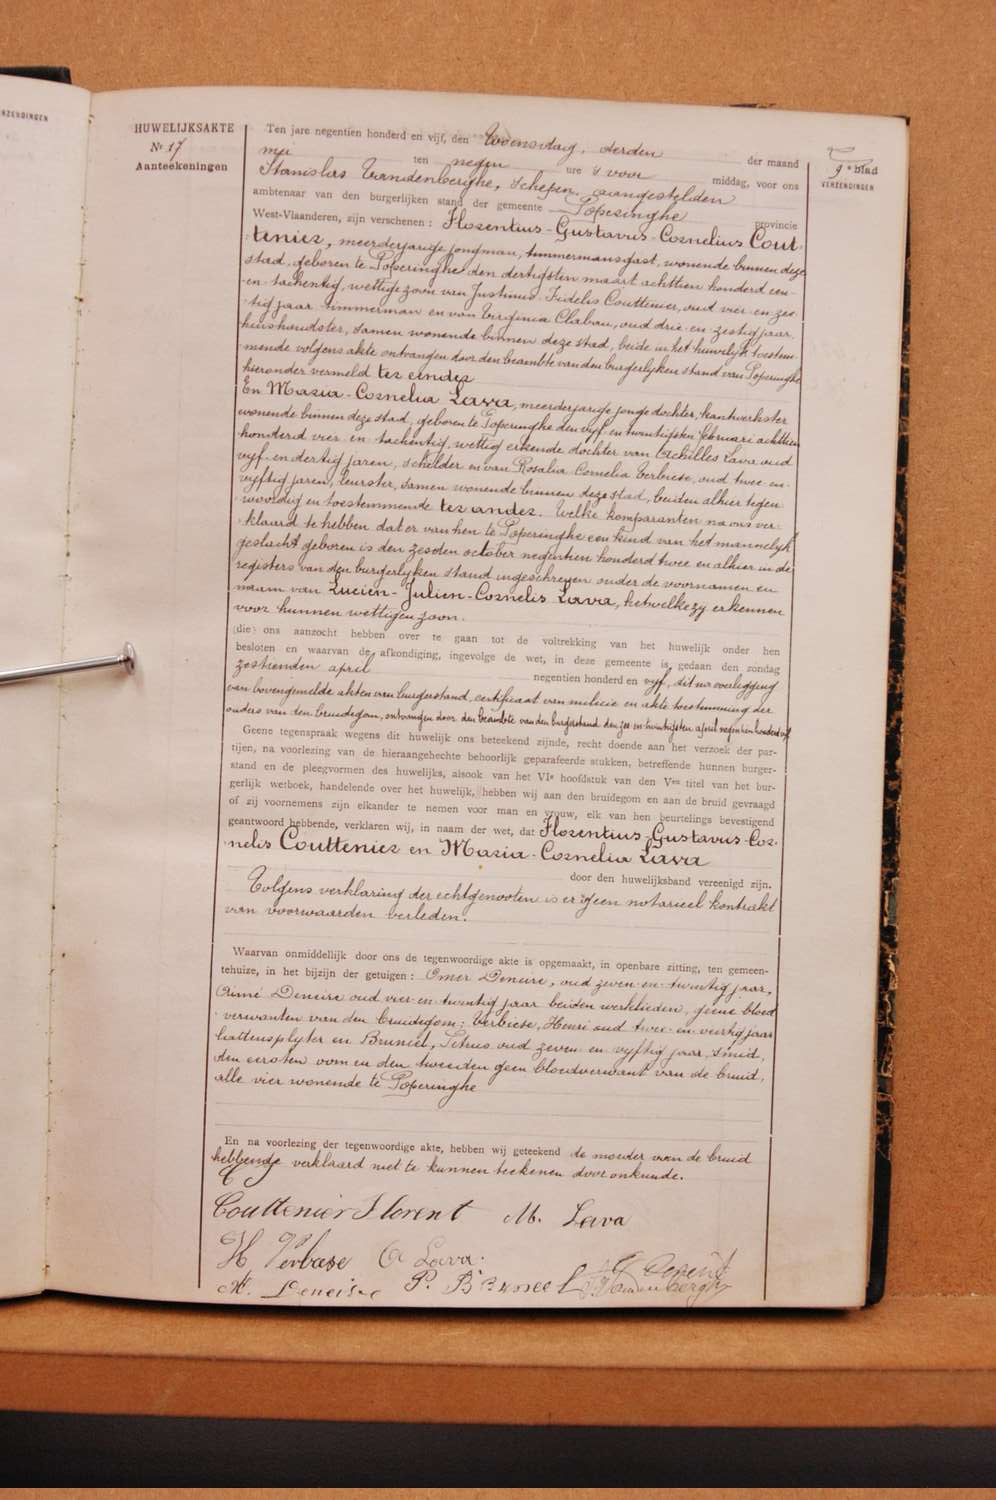 NZENDINGEN
HUWELIJKSAKTE
Nr 17
Aanteekeningen
9e blad
VERZENDINGEN
Ten jare negentien honderd en vijf, den Woensdag, derden der maand
mei ten negen ure 's voor middag, voor ons
Stanislas Vandenberghe, schepen, aangestelden
ambtenaar van den burgerlijken stand der gemeente Poperinghe provincie
West-Vlaanderen, zijn verschenen : Florentius-Gustavus-Cornelius Cout-
tenier, meerderjarige jongman, timmermansgast, wonende binnen deze
stad, geboren te Poperinghe den dertigsten maart achttien honderd een-
en-tachentig, wettige zoon van Justinus-Fidelis Couttenier, oud vier-en-zes-
tig jaar timmerman en van Virginia Clabau, oud drie-en-zestig jaar,
huishoudster, samen wonende binnen deze stad, beide in het huwelijk toestem-
mende volgens akte ontvangen door den beambte van den burgerlijken stand van Poperinghe
hieronder vermeld ter eender
En Maria-Cornelia Lava, meerderjarige jonge dochter, kantwerkster
wonende binnen deze stad, geboren te Poperinghe den vijf-en-twintigsten februari achttien
honderd vier-en-tachentig, wettig erkende dochter van Achilles Lava oud
vijf-en-dertig jaren, schilder en van Rosalia Cornelia Verbiese, oud twee-en-
vijftig jaren, leurster, samen wonende binnen deze stad, beiden alhier tegen-
woordig en toestemmende ter ander. Welke komparanten na ons ver-
klaard te hebben dat er van hen te Poperinghe een kind van het mannelijk
geslacht geboren is den zesden october negentien honderd twee en alhier in de
registers van den burgerlijken stand ingeschreven onder de voornamen en
naam van Lucien-Julien-Cornelis Lava, hetwelke zij erkennen
voor hunnen wettigen zoon.
(die) ons aanzocht hebben over te gaan tot de voltrekking van het huwelijk onder hen
besloten en waarvan de afkondiging, ingevolge de wet, in deze gemeente is gedaan den zondag
zestienden april negentien honderd en vijf, dit na overlegging
van bovengemelde akten van burgerstand, certificaat van militie en akte toestemming der
ouders van den bruidegom, ontvangen door den beambte van den burgerstand den zes en twintigsten april negentien honderd vijf
Geene tegenspraak wegens dit huwelijk ons beteekend zijnde, recht doende aan het verzoek der par-
tijen, na voorlezing van de hieraangehechte behoorlijk geparafeerde stukken, betreffende hunnen burger-
stand en de pleegvormen des huwelijks, alsook van het VIe hoofdstuk van den Ven titel van het bur-
gerlijk wetboek, handelende over het huwelijk, hebben wij aan den bruidegom en aan de bruid gevraagd
of zij voornemens zijn elkander te nemen voor man en vrouw, elk van hen beurtelings bevestigend
geantwoord hebbende, verklaren wij, in naam der wet, dat Florentius-Gustavus-Cor-
nelis Couttenier en Maria-Cornelia Lava
door den huwelijksband vereenigd zijn.
Volgens verklaring der echtgenooten is er geen notarieel kontrakt
van voorwaarden verleden.
Waarvan onmiddellijk door ons de tegenwoordige akte is opgemaakt, in openbare zitting, ten gemeen-
tehuize, in het bijzijn der getuigen : Omer Deneire, oud zeven-en-twintig jaar,
Aimé Deneire oud vier-en-twintig jaar beiden werklieden, geene bloed
verwanten van den bruidegom; Verbiese, Henri oud twee-en-veertig jaar
lattensplyter en Bruneel, Petrus oud zeven-en-vijftig jaar, smid,
den eersten oom en den tweeden geen bloedverwant van de bruid,
alle vier wonende te Poperinghe
En na voorlezing der tegenwoordige akte, hebben wij geteekend de moeder van de bruid
hebbende verklaard niet te kunnen teekenen door onkunde.
Couttenier Florent M. Lava
H Verbese A Lava.
P. Bruneel